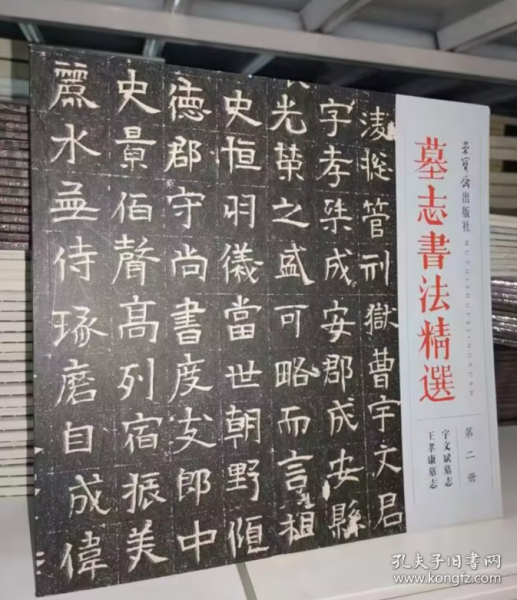 榮寶齋出版社
墓志書法精選
第二册
宇文斌墓志
王孝康墓志
管刑獄曹宇文君
字孝渠成安郡成安縣
光榮之盛可略而言祖
史恒羽儀當世朝野傾
德郡守尚書度支郎中
史景伯聲高列宿振美
麗水侍琢磨自成偉
孔夫子旧书网
www.kongfz.com